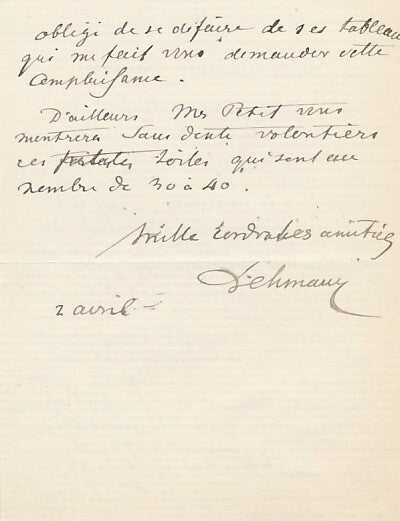 obligé de se défaire de ses tableau
qui me fait vous demander cette
Complaisance.
D'ailleurs Mr Petit vous
montrera sans doute volontiers
ces toiles qui sont au
nombre de 30 à 40.
Mille cordiales amitiés
Lehmann
2 avril